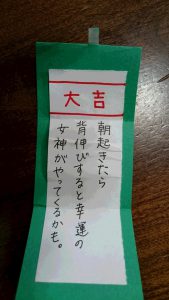 大吉
朝起きたら
背伸びすると幸運の
女神がやってくるかも。